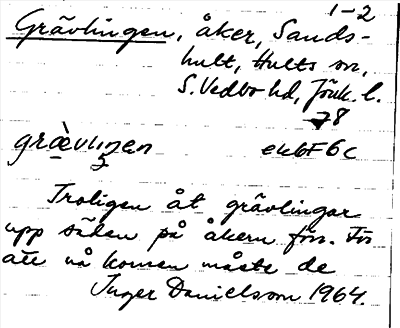 1-2
Grävlingen, åker, Sands-
hult, Hults sn,
S. Vedbo hd, Jönk. l.
78
græ̀vlıŋen ekbF6c
Troligen åt grävlingar
upp säden på åkern förr. För
att nå kornen måste de
Inger Danielsson 1964.